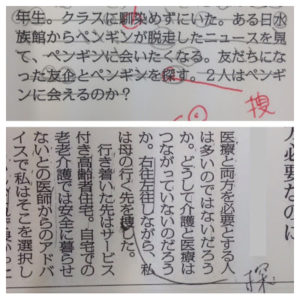 年生。クラスに馴染めずにいた。ある日水
族館からペンギンが脱走したニュースを見
て、ペンギンに会いたくなる。友だちにな
った友企とペンギンを探す。2人はペンギ
ンに会えるのか?
捜
人必要なのに
医療と両方を必要とする人
は多いのではないだろう
か。どうして介護と医療は
つながっていないのだろう
か。右往左往しながら、私
は母の行く先を捜した。
行き着いた先はサービス
付き高齢者住宅。自宅での
老老介護では安全に暮らせ
ないとの医師からのアドバ
イスで私はそこを選択し
探